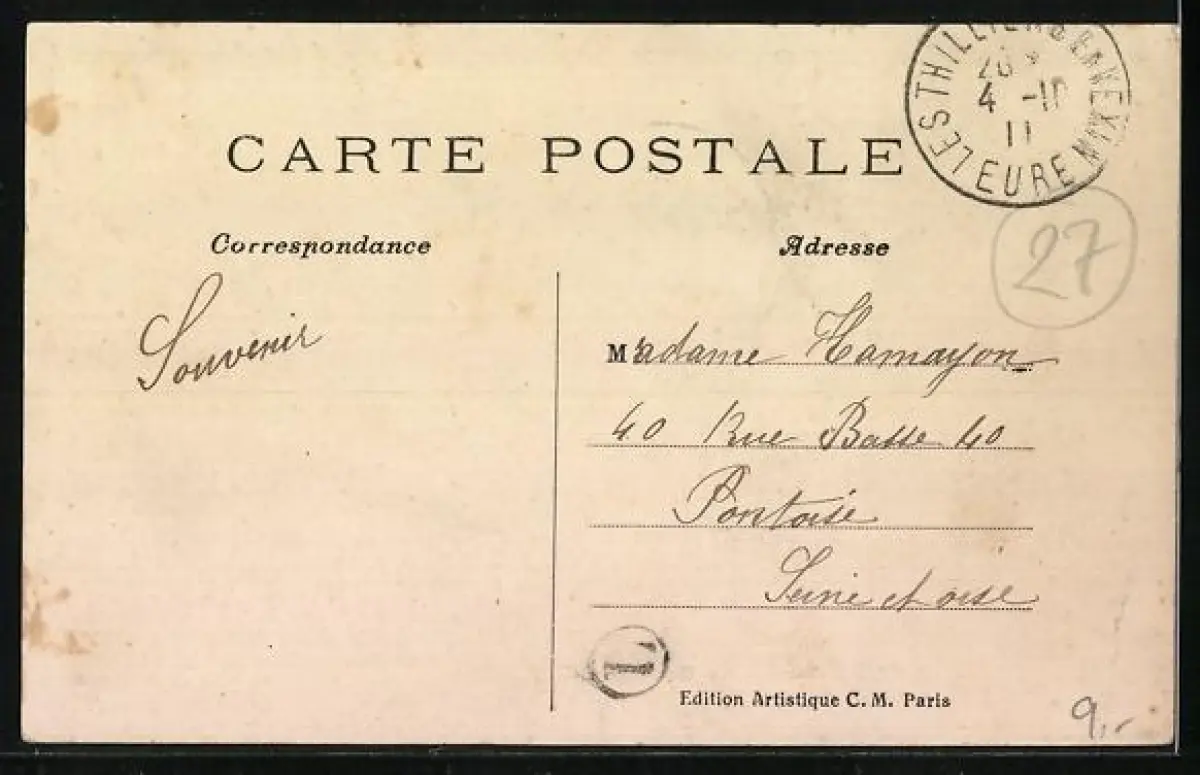 LES THILLIERS EN VEXIN
4 -10
11
EURE
CARTE POSTALE
27
Correspondance
Adresse
Souvenir
Madame Hamayon
40 Rue Basse 40
Pontoise
Seine et oise
1
Edition Artistique C. M. Paris
9,-